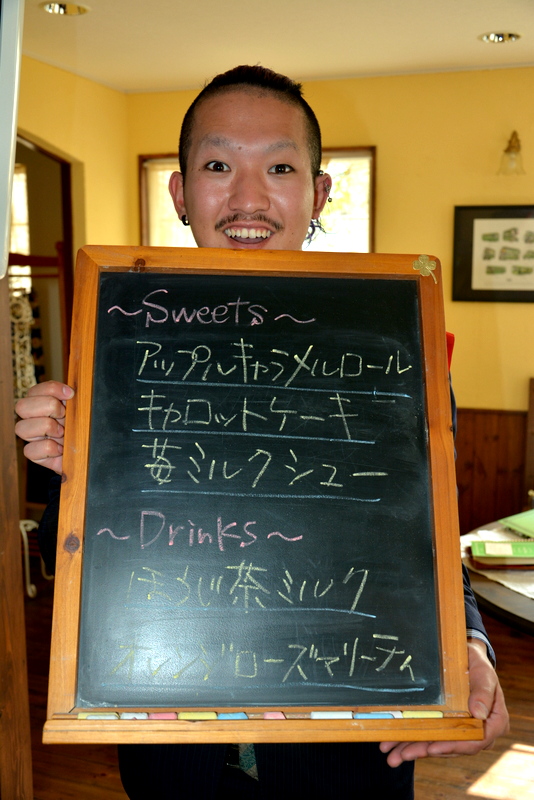 ~Sweets~
アップルキャラメルロール
キャロットケーキ
苺ミルクシュー
~Drinks~
ほうじ茶ミルク
オレンジローズマリーティ